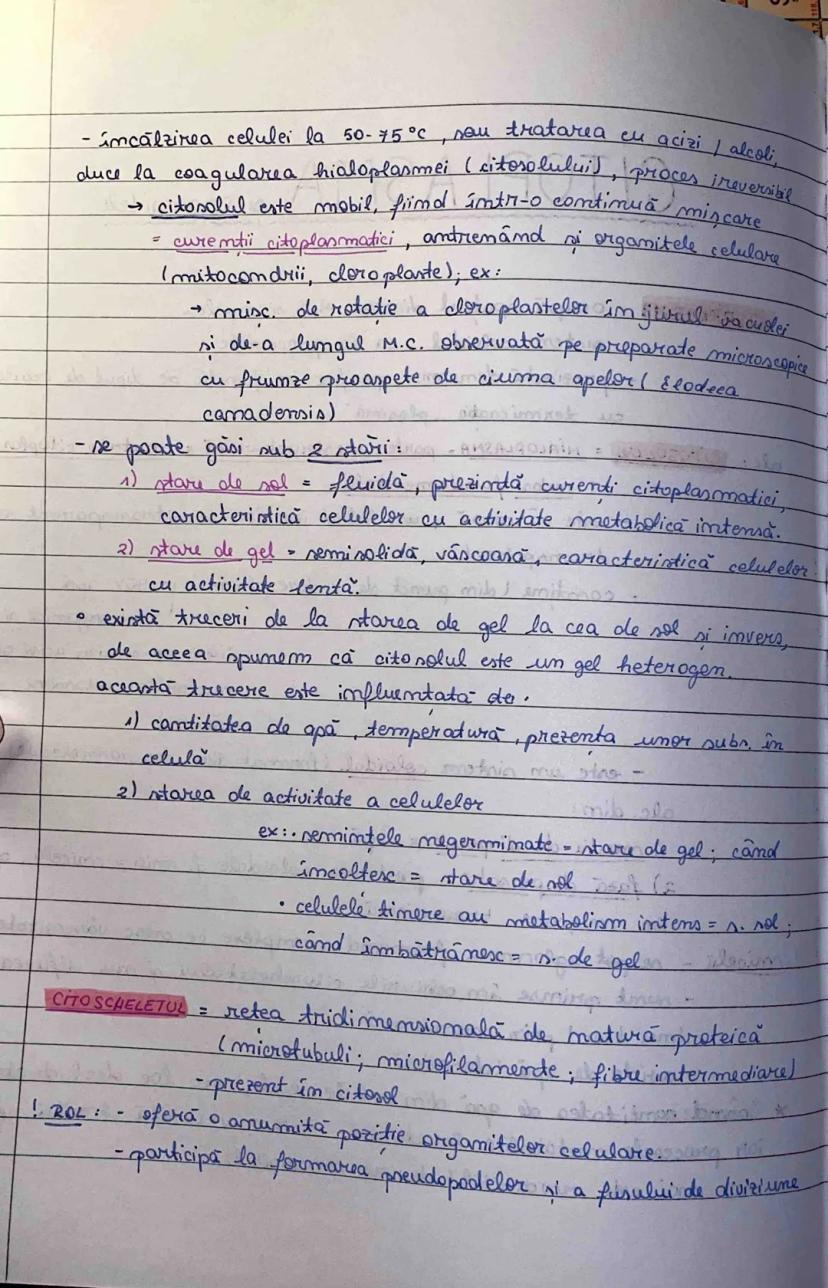 - încălzirea celulei la 50-75°C, sau tratarea cu acizi / alcoli,
duce la coagularea hialoplasmei (citosolului), proces ireversibil
→ citosolul este mobil, fiind într-o continuă mișcare
= curenții citoplasmatici, antrenând și organitele celulare
(mitocondrii, cloroplaste); ex:
→ mișc. de rotație a cloroplastelor în jurul vacuolei
și de-a lungul M.C. observată pe preparate microscopice
cu frunze proaspete de ciuma apelor (Elodeea
canadensis)
- se poate găsi sub 2 stări:
1) stare de sol = fluidă, prezintă curenți citoplasmatici,
caracteristică celulelor cu activitate metabolică intensă.
2) stare de gel = semisolidă, vâscoasă, caracteristică celulelor
cu activitate lentă.
• există treceri de la starea de gel la cea de sol și invers,
de aceea spunem că citosolul este un gel heterogen.
această trecere este influențată de:
1) cantitatea de apă, temperatură, prezența unor subs. în
celulă
2) starea de activitate a celulelor
ex: • semințele negerminate = stare de gel; când
încolțesc = stare de sol
• celulele tinere au metabolism intens = s. sol;
când îmbătrânesc = s. de gel
CITOSCHELETUL = rețea tridimensională de natură proteică
(microtubuli; microfilamente; fibre intermediare)
- prezent în citosol
! ROL: - oferă o anumită poziție organitelor celulare.
- participă la formarea pseudopodelor și a fusului de diviziune